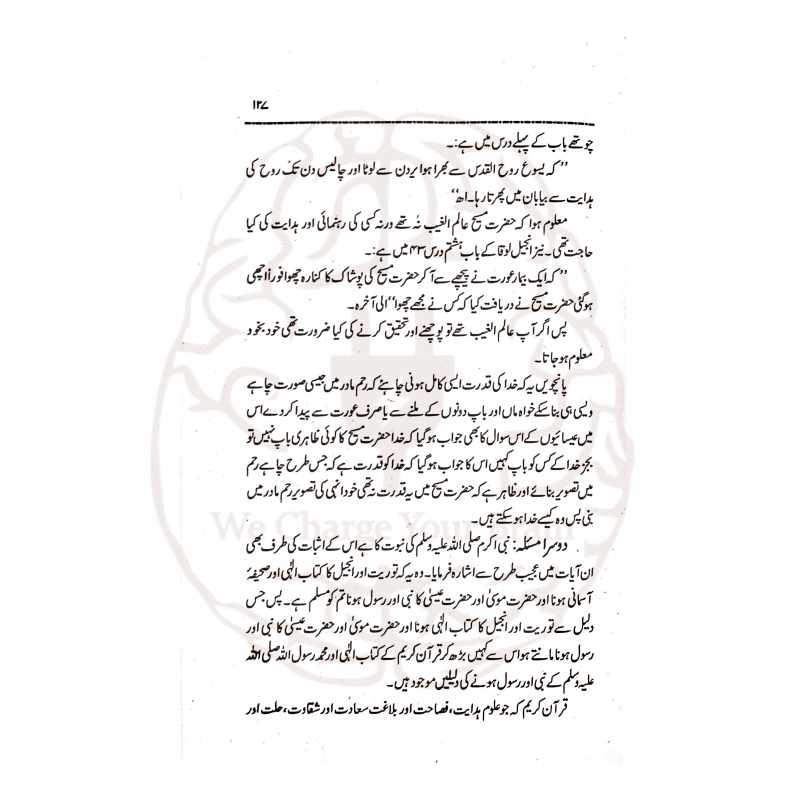 ۱۲۷
چوتھے باب کے پہلے درس میں ہے:۔
’’کہ یسوع روح القدس سے بھرا ہوا یردن سے لوٹا اور چالیس دن تک روح کی
ہدایت سے بیابان میں پھرتا رہا۔ اھ‘‘
معلوم ہوا کہ حضرت مسیح عالم الغیب نہ تھے ورنہ کسی کی رہنمائی اور ہدایت کی کیا
حاجت تھی۔ نیز انجیل لوقا کے باب ہشتم درس ۴۳ میں ہے:۔
’’کہ ایک بیمار عورت نے پیچھے سے آ کر حضرت مسیح کی پوشاک کا کنارہ چھوا فوراً اچھی
ہوگئی حضرت مسیح نے دریافت کیا کہ کس نے مجھے چھوا‘‘ الی آخرہ۔
پس اگر آپ عالم الغیب تھے تو پوچھنے اور تحقیق کرنے کی کیا ضرورت تھی خود بخود
معلوم ہو جاتا۔
پانچویں یہ کہ خدا کی قدرت ایسی کامل ہونی چاہئے کہ رحم مادر میں جیسی صورت چاہے
ویسی ہی بنا سکے خواہ ماں اور باپ دونوں کے ملنے سے یا صرف عورت سے پیدا کر دے اس
میں عیسائیوں کے اس سوال کا بھی جواب ہوگیا کہ خدا حضرت مسیح کا کوئی ظاہری باپ نہیں تو
بجز خدا کے کس کو باپ کہیں اس کا جواب ہوگیا کہ خدا کو قدرت ہے کہ جس طرح چاہے رحم
میں تصویر بنائے اور ظاہر ہے کہ حضرت مسیح میں یہ قدرت نہ تھی خود انہی کی تصویر رحم مادر میں
بنی پس وہ کیسے خدا ہو سکتے ہیں۔
We Charge Your
دوسرا مسئلہ: نبی اکرم صلی اللہ علیہ وسلم کی نبوت کا ہے اس کے اثبات کی طرف بھی
ان آیات میں عجیب طرح سے اشارہ فرمایا۔ وہ یہ کہ توریت اور انجیل کا کتاب الٰہی اور صحیفۂ
آسمانی ہونا اور حضرت موسیٰ اور حضرت عیسیٰ کا نبی اور رسول ہونا تم کو مسلم ہے۔ پس جس
دلیل سے توریت اور انجیل کا کتاب الٰہی ہونا اور حضرت موسیٰ اور حضرت عیسیٰ کا نبی اور
رسول ہونا مانتے ہو اس سے کہیں بڑھ کر قرآن کریم کے کتاب الٰہی اور محمد رسول اللہ صلی اللہ
علیہ وسلم کے نبی اور رسول ہونے کی دلیلیں موجود ہیں۔
قرآن کریم کہ جو علوم ہدایت، فصاحت اور بلاغت سعادت اور شقاوت، حلت اور